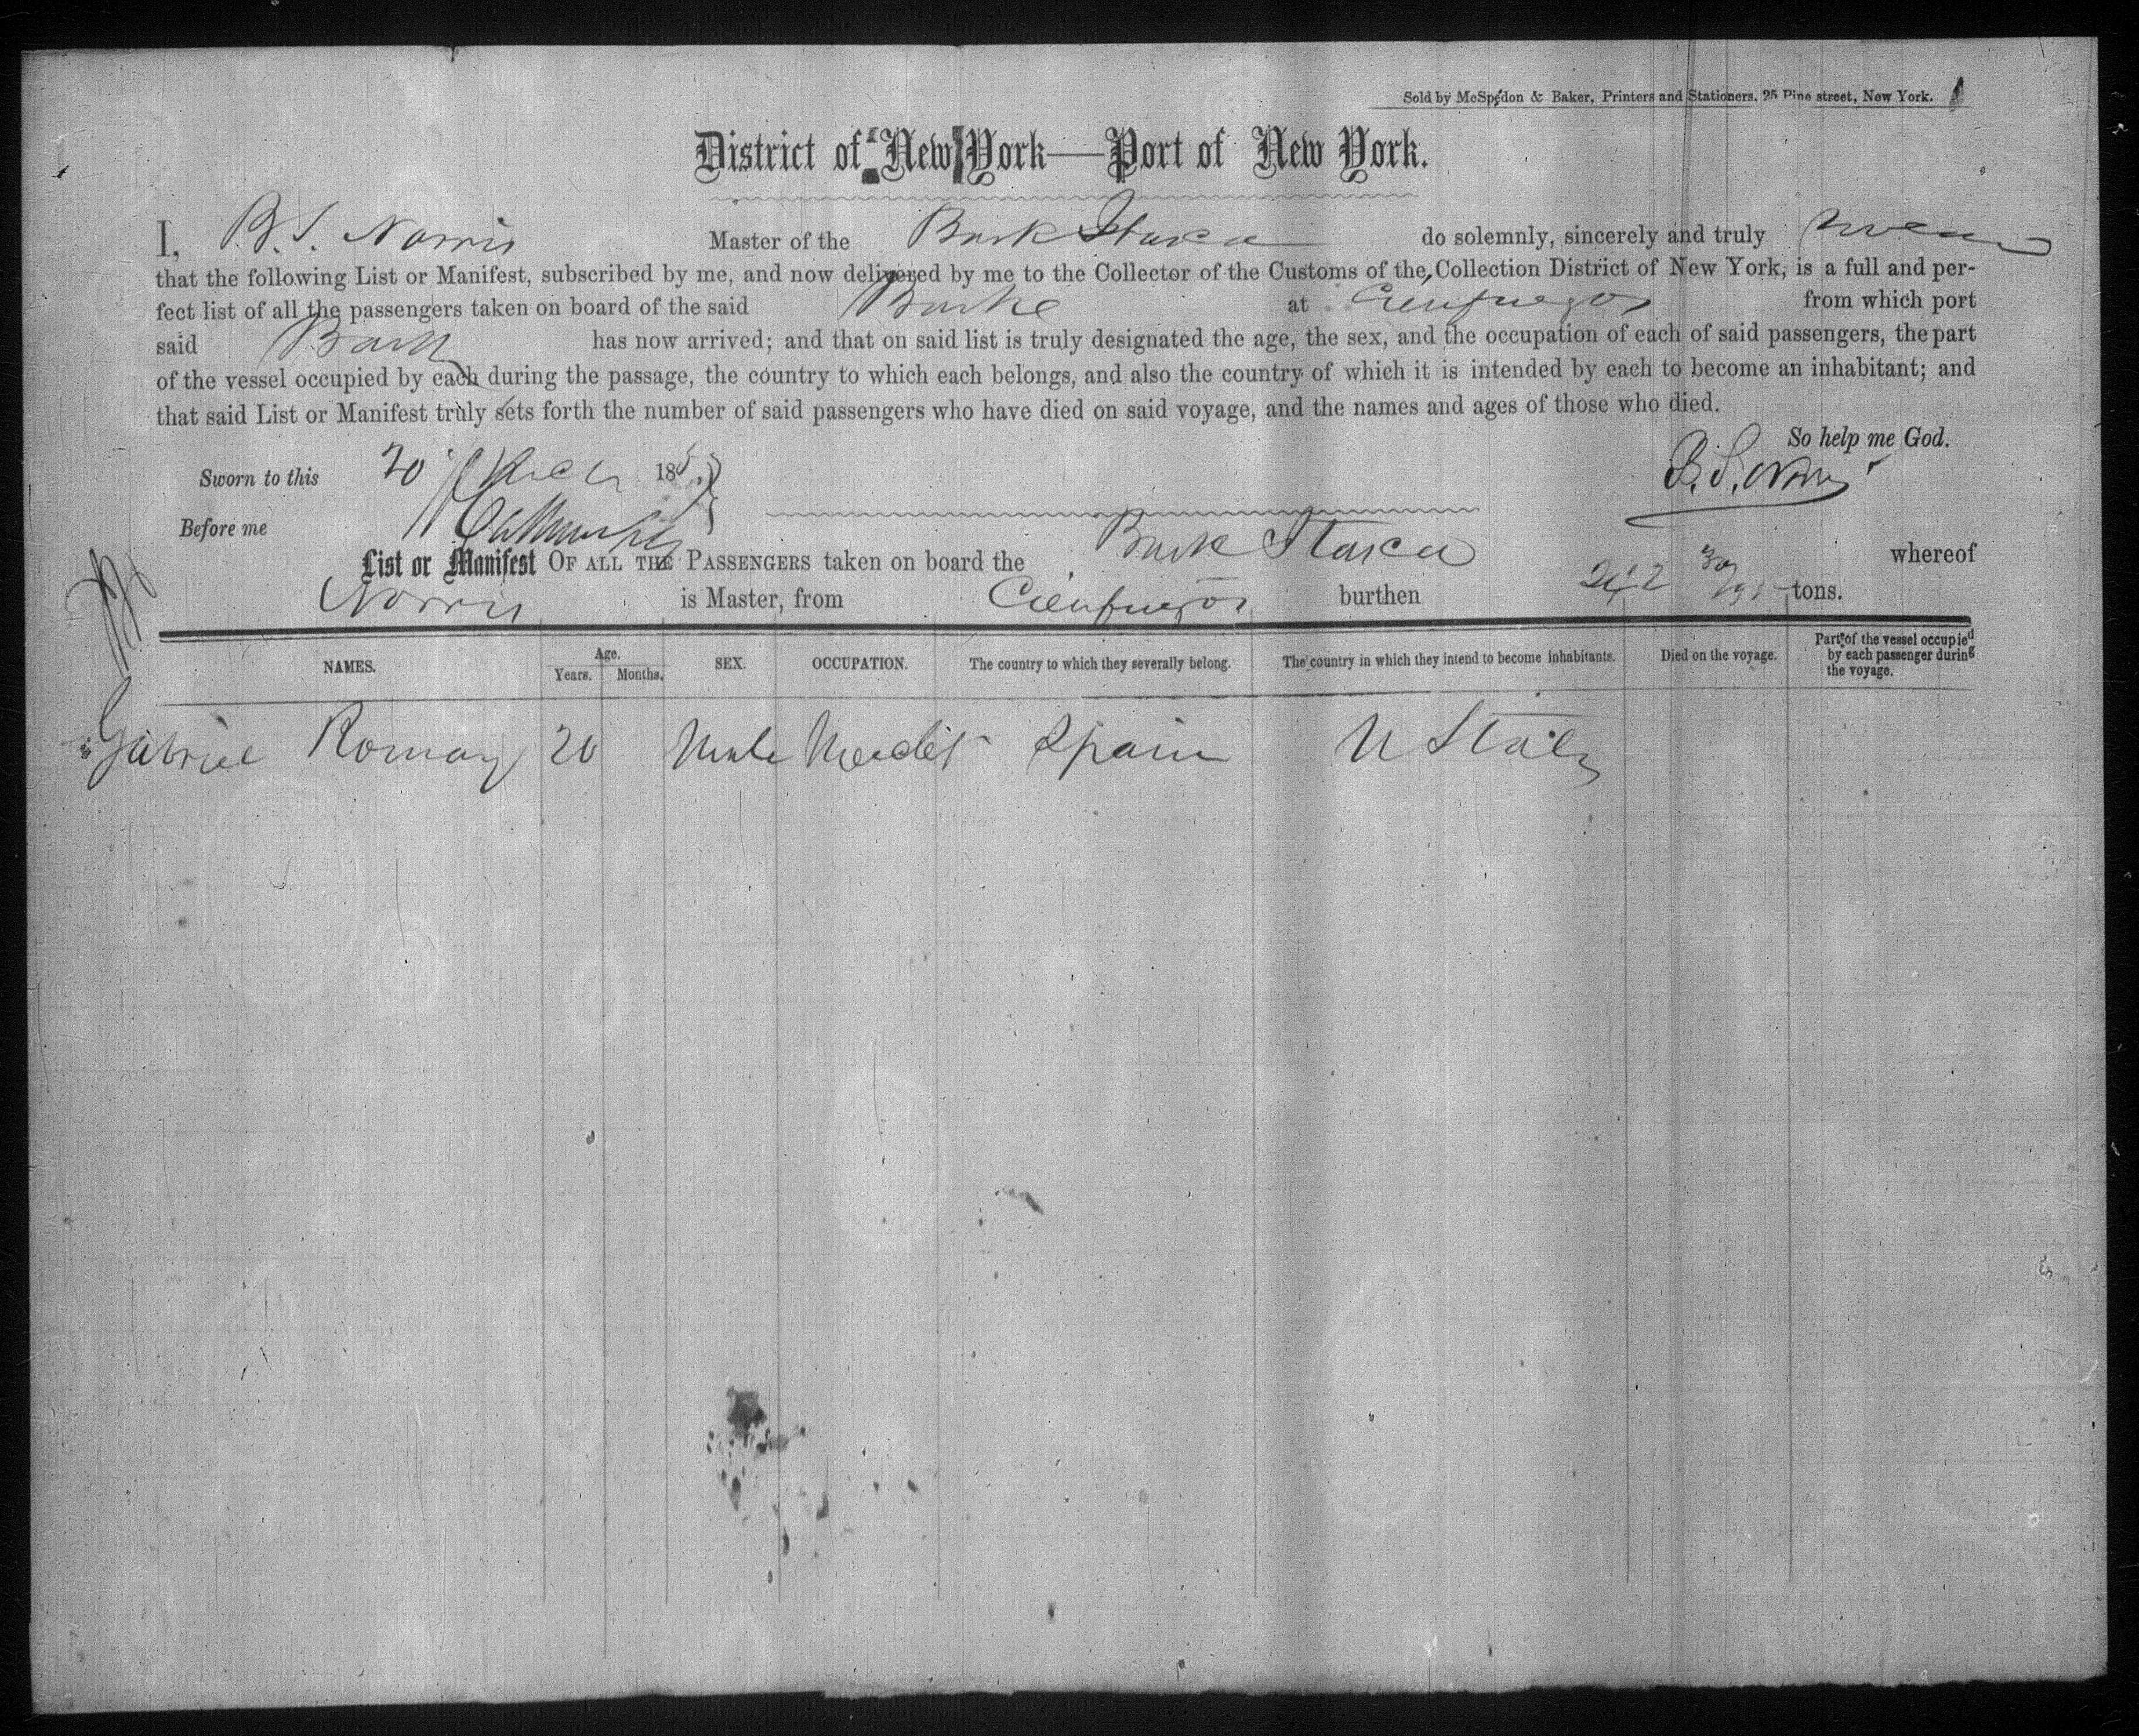 Sold by McSpedon & Baker, Printers and Stationers, 25 Pine street, New York.
District of New York—Port of New York.
I, B. S. Norris Master of the Bark Itasca do solemnly, sincerely and truly swear
that the following List or Manifest, subscribed by me, and now delivered by me to the Collector of the Customs of the Collection District of New York, is a full and per-
fect list of all the passengers taken on board of the said Barke at Cienfuegos from which port
said Bark has now arrived; and that on said list is truly designated the age, the sex, and the occupation of each of said passengers, the part
of the vessel occupied by each during the passage, the country to which each belongs, and also the country of which it is intended by each to become an inhabitant; and
that said List or Manifest truly sets forth the number of said passengers who have died on said voyage, and the names and ages of those who died.
So help me God.
Sworn to this 20 185
B. S. Norris
Before me
List or Manifest OF ALL THE PASSENGERS taken on board the Bark Itasca whereof
Norris is Master, from Cienfuegos burthen 242 30/95 tons.
NAMES. Age. Years. Months. SEX. OCCUPATION. The country to which they severally belong. The country in which they intend to become inhabitants. Died on the voyage. Part of the vessel occupied by each passenger during the voyage.
Gabriel Romay 20 Male Spain U States